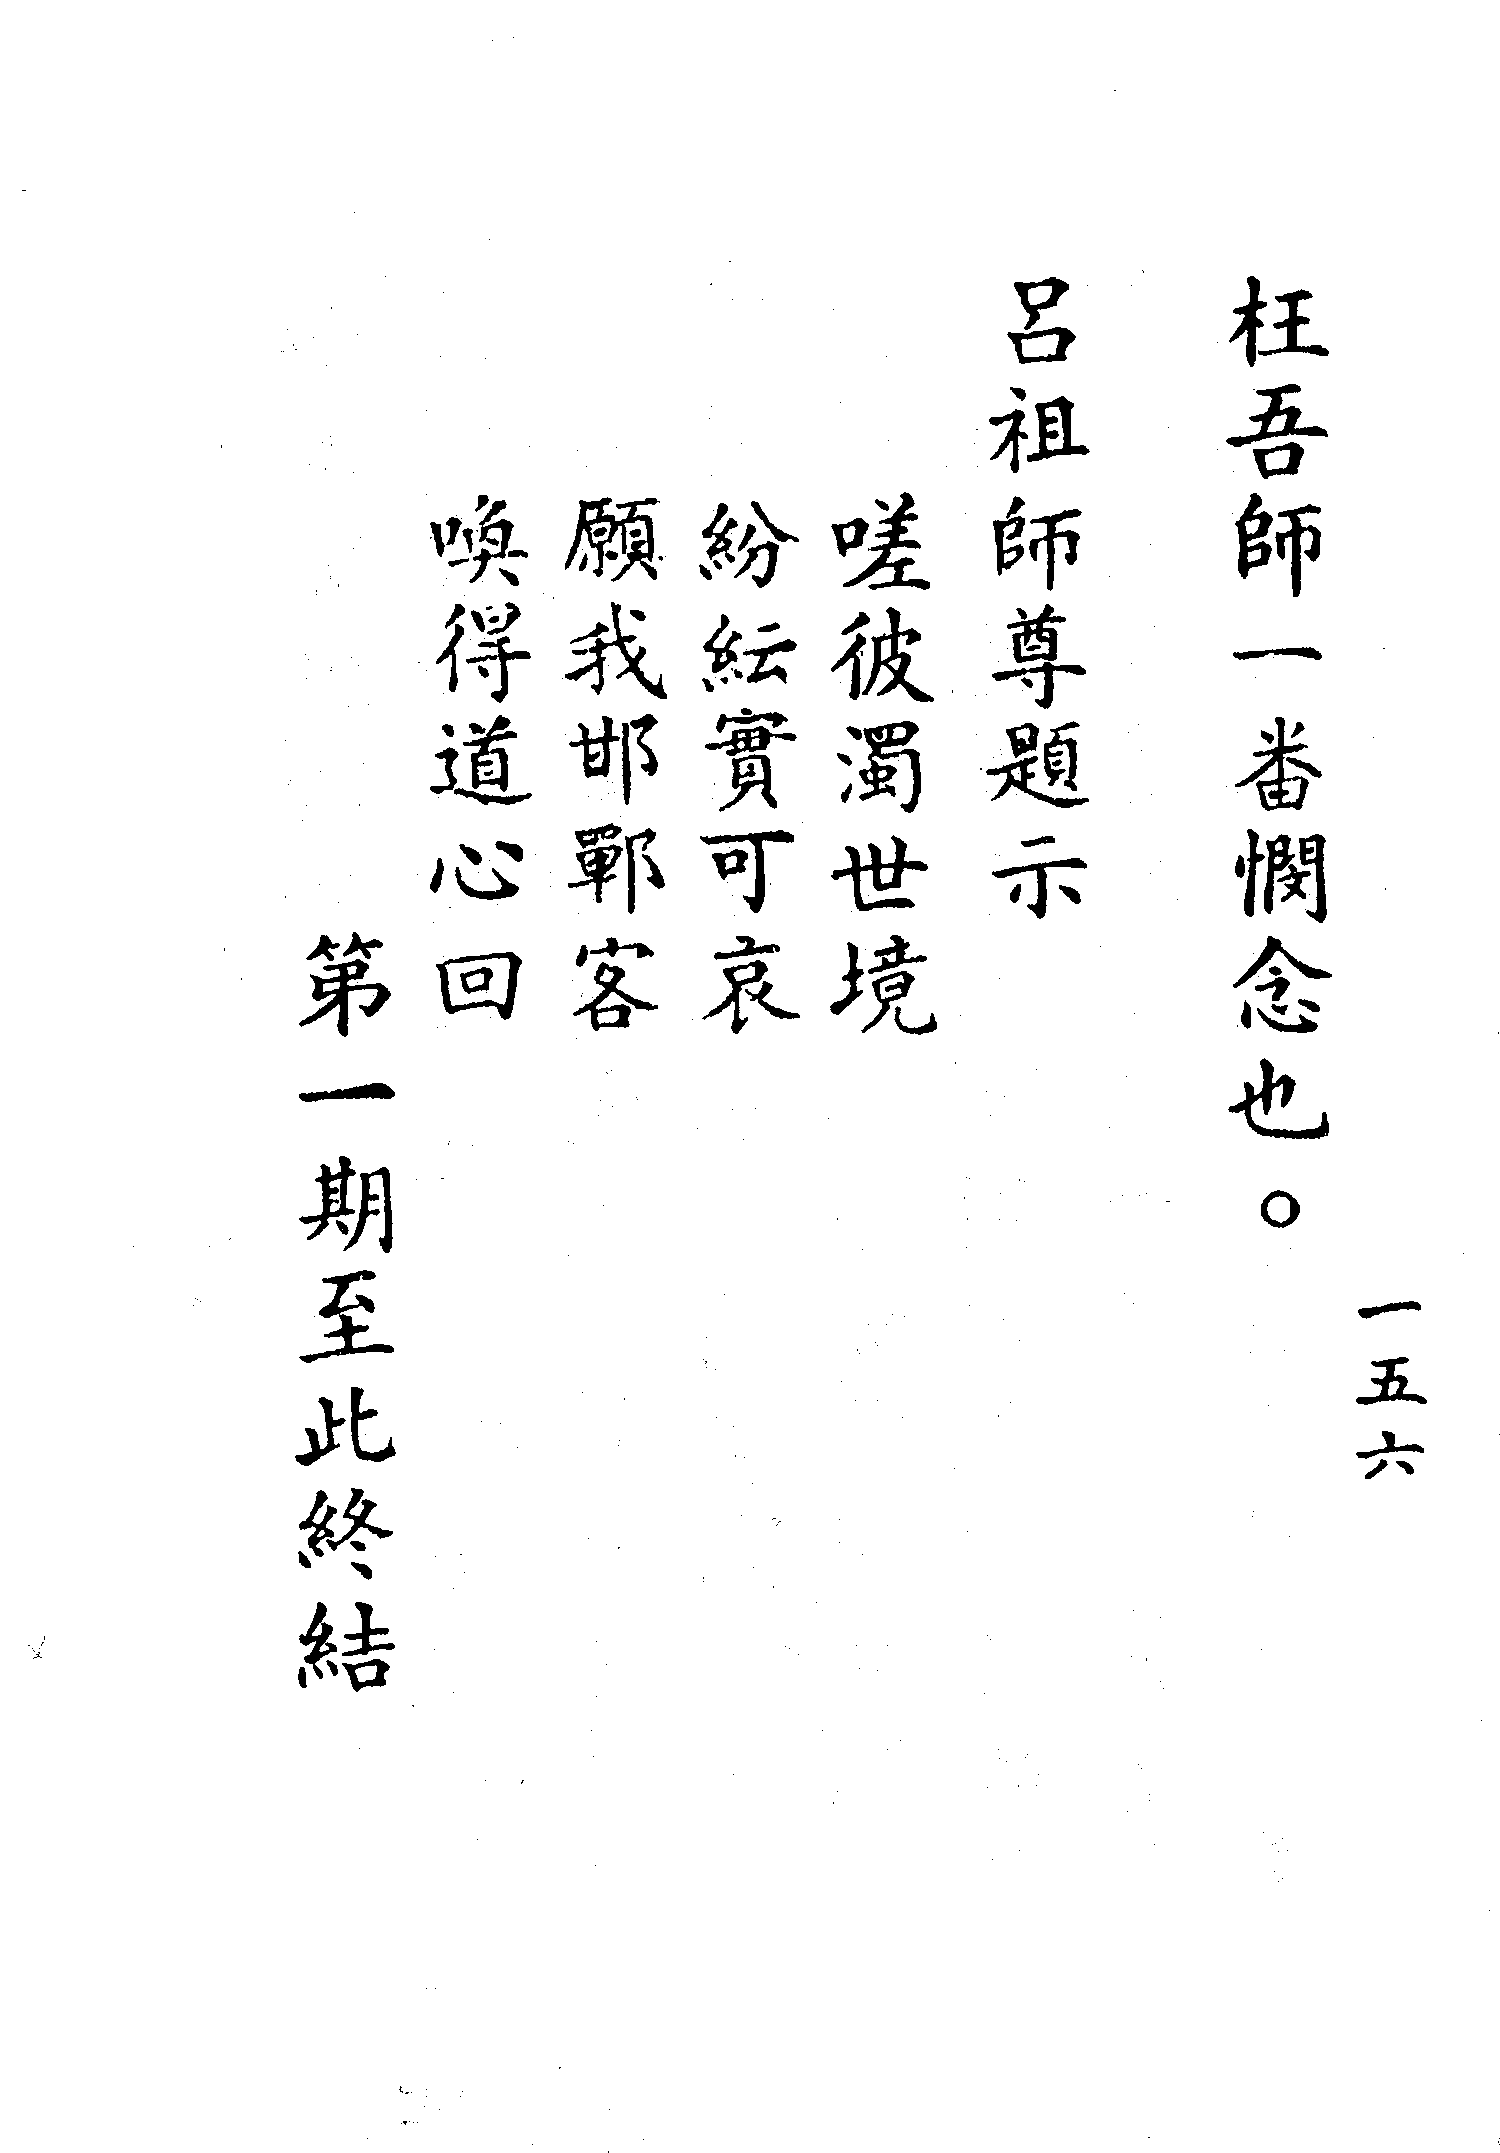 一五六
枉吾師一番憫念也。
呂祖師尊題示
嗟彼濁世境
紛紜實可哀
願我邯鄲客
喚得道心回
第一期至此終結